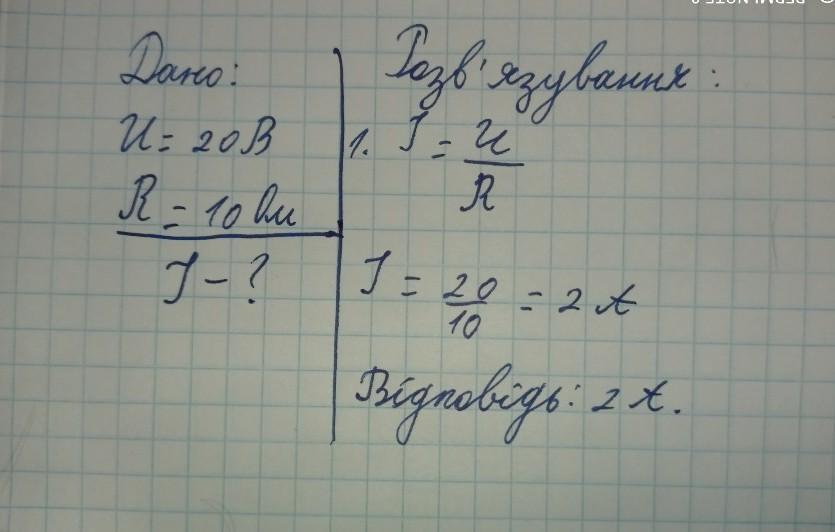 Дано:
U = 20 В
R = 10 Ом
I - ?
Розв'язування:
1. I = U / R
I = 20 / 10 = 2 А
Відповідь: 2 А.